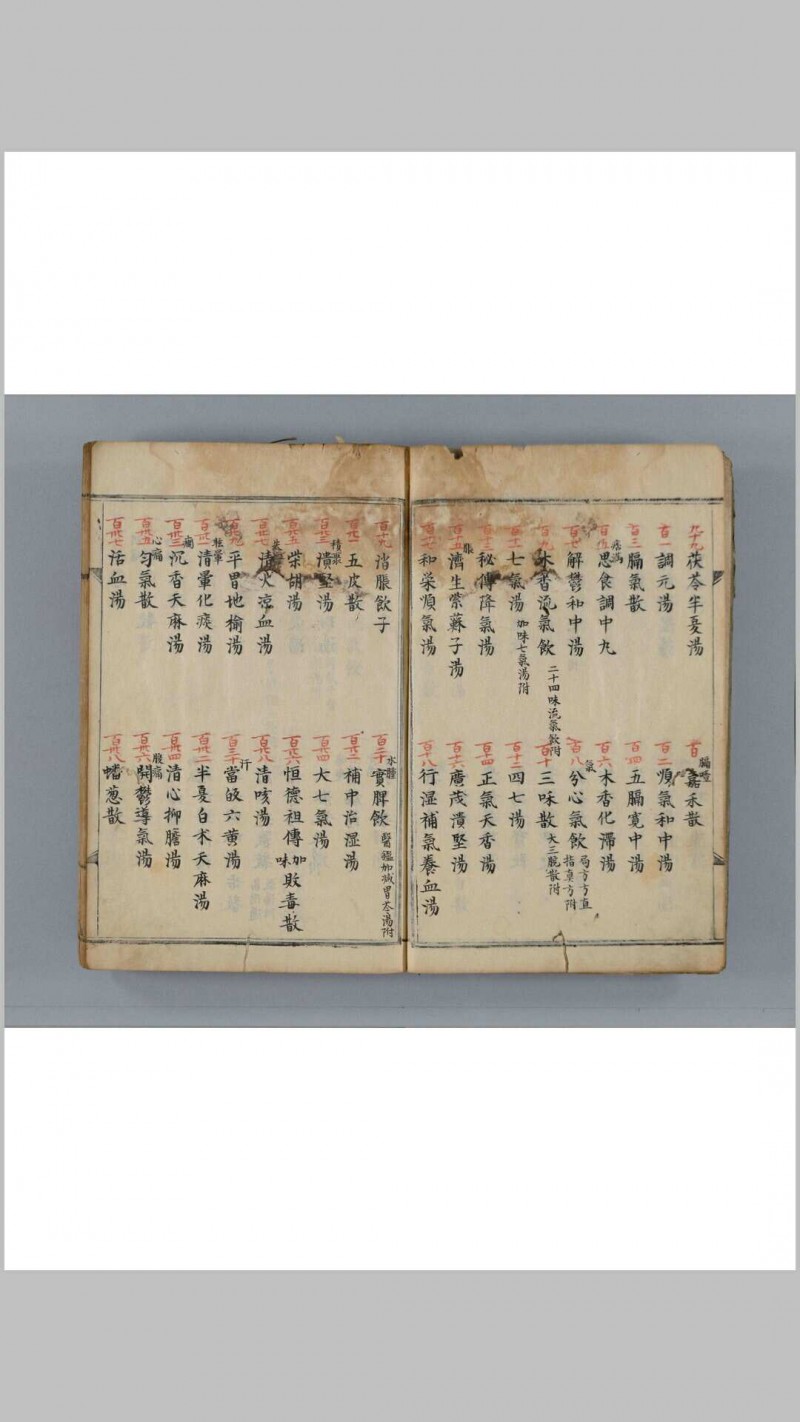 九十九 茯苓半夏湯
膈噎
百 嘉禾散
百一 調元湯
百二 順氣和中湯
百三 膈氣散
百四 五膈寬中湯
百五 思食調中丸
百六 木香化滯湯
百七 解鬱和中湯
氣
百八 分心氣飲 局方方直指真方附
百九 木香流氣飲 二十四味流氣飲附
百十 三味散 大三脘散附
百十一 七氣湯 加味七氣湯附
百十二 四七湯
百十三 秘傳降氣湯
百十四 正氣天香湯
脹
百十五 濟生紫蘇子湯
百十六 廣茂潰堅湯
百十七 和榮順氣湯
百十八 行湿補氣養血湯
百十九 消脹飲子
水腫
百二十 實脾飲 醫鑑加减胃苓湯附
百廿一 五皮散
百廿二 補中治湿湯
積聚
百廿三 潰堅湯
百廿四 大七氣湯
百廿五 柴胡湯
百廿六 恒德祖傳加味敗毒散
百廿七 清火凉血湯
百廿八 清咳湯
百廿九 平胃地榆湯
汗
百三十 當皈六黃湯
眩暈
百卅一 清暈化痰湯
百卅二 半夏白朮天麻湯
癎
百卅三 沉香天麻湯
百卅四 清心抑膽湯
心痛
百卅五 匀氣散
腹痛
百卅六 開鬱導氣湯
百卅七 活血湯
百卅八 蟠葱散